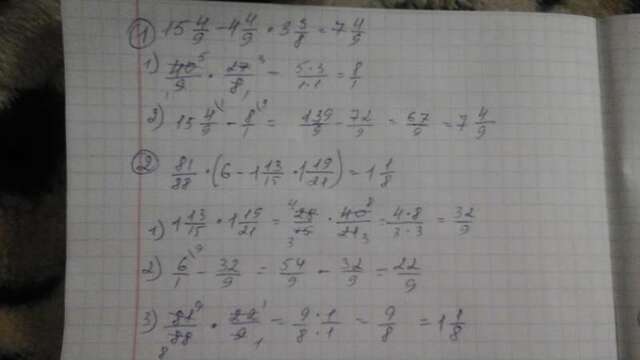 ① 15 4/9 - 4 4/9 · 3 3/8 = 7 4/9
1) 40/9 · 27/8 = 5·3/1·1 = 8/1
2) 15 4/9 - 8/1 = 139/9 - 72/9 = 67/9 = 7 4/9
② 81/88 · (6 - 1 13/15 · 1 19/21) = 1 1/8
1) 1 13/15 · 1 19/21 = 28/15 · 40/21 = 4·8/3·3 = 32/9
2) 6/1 - 32/9 = 54/9 - 32/9 = 22/9
3) 81/88 · 22/9 = 9·1/8·1 = 9/8 = 1 1/8